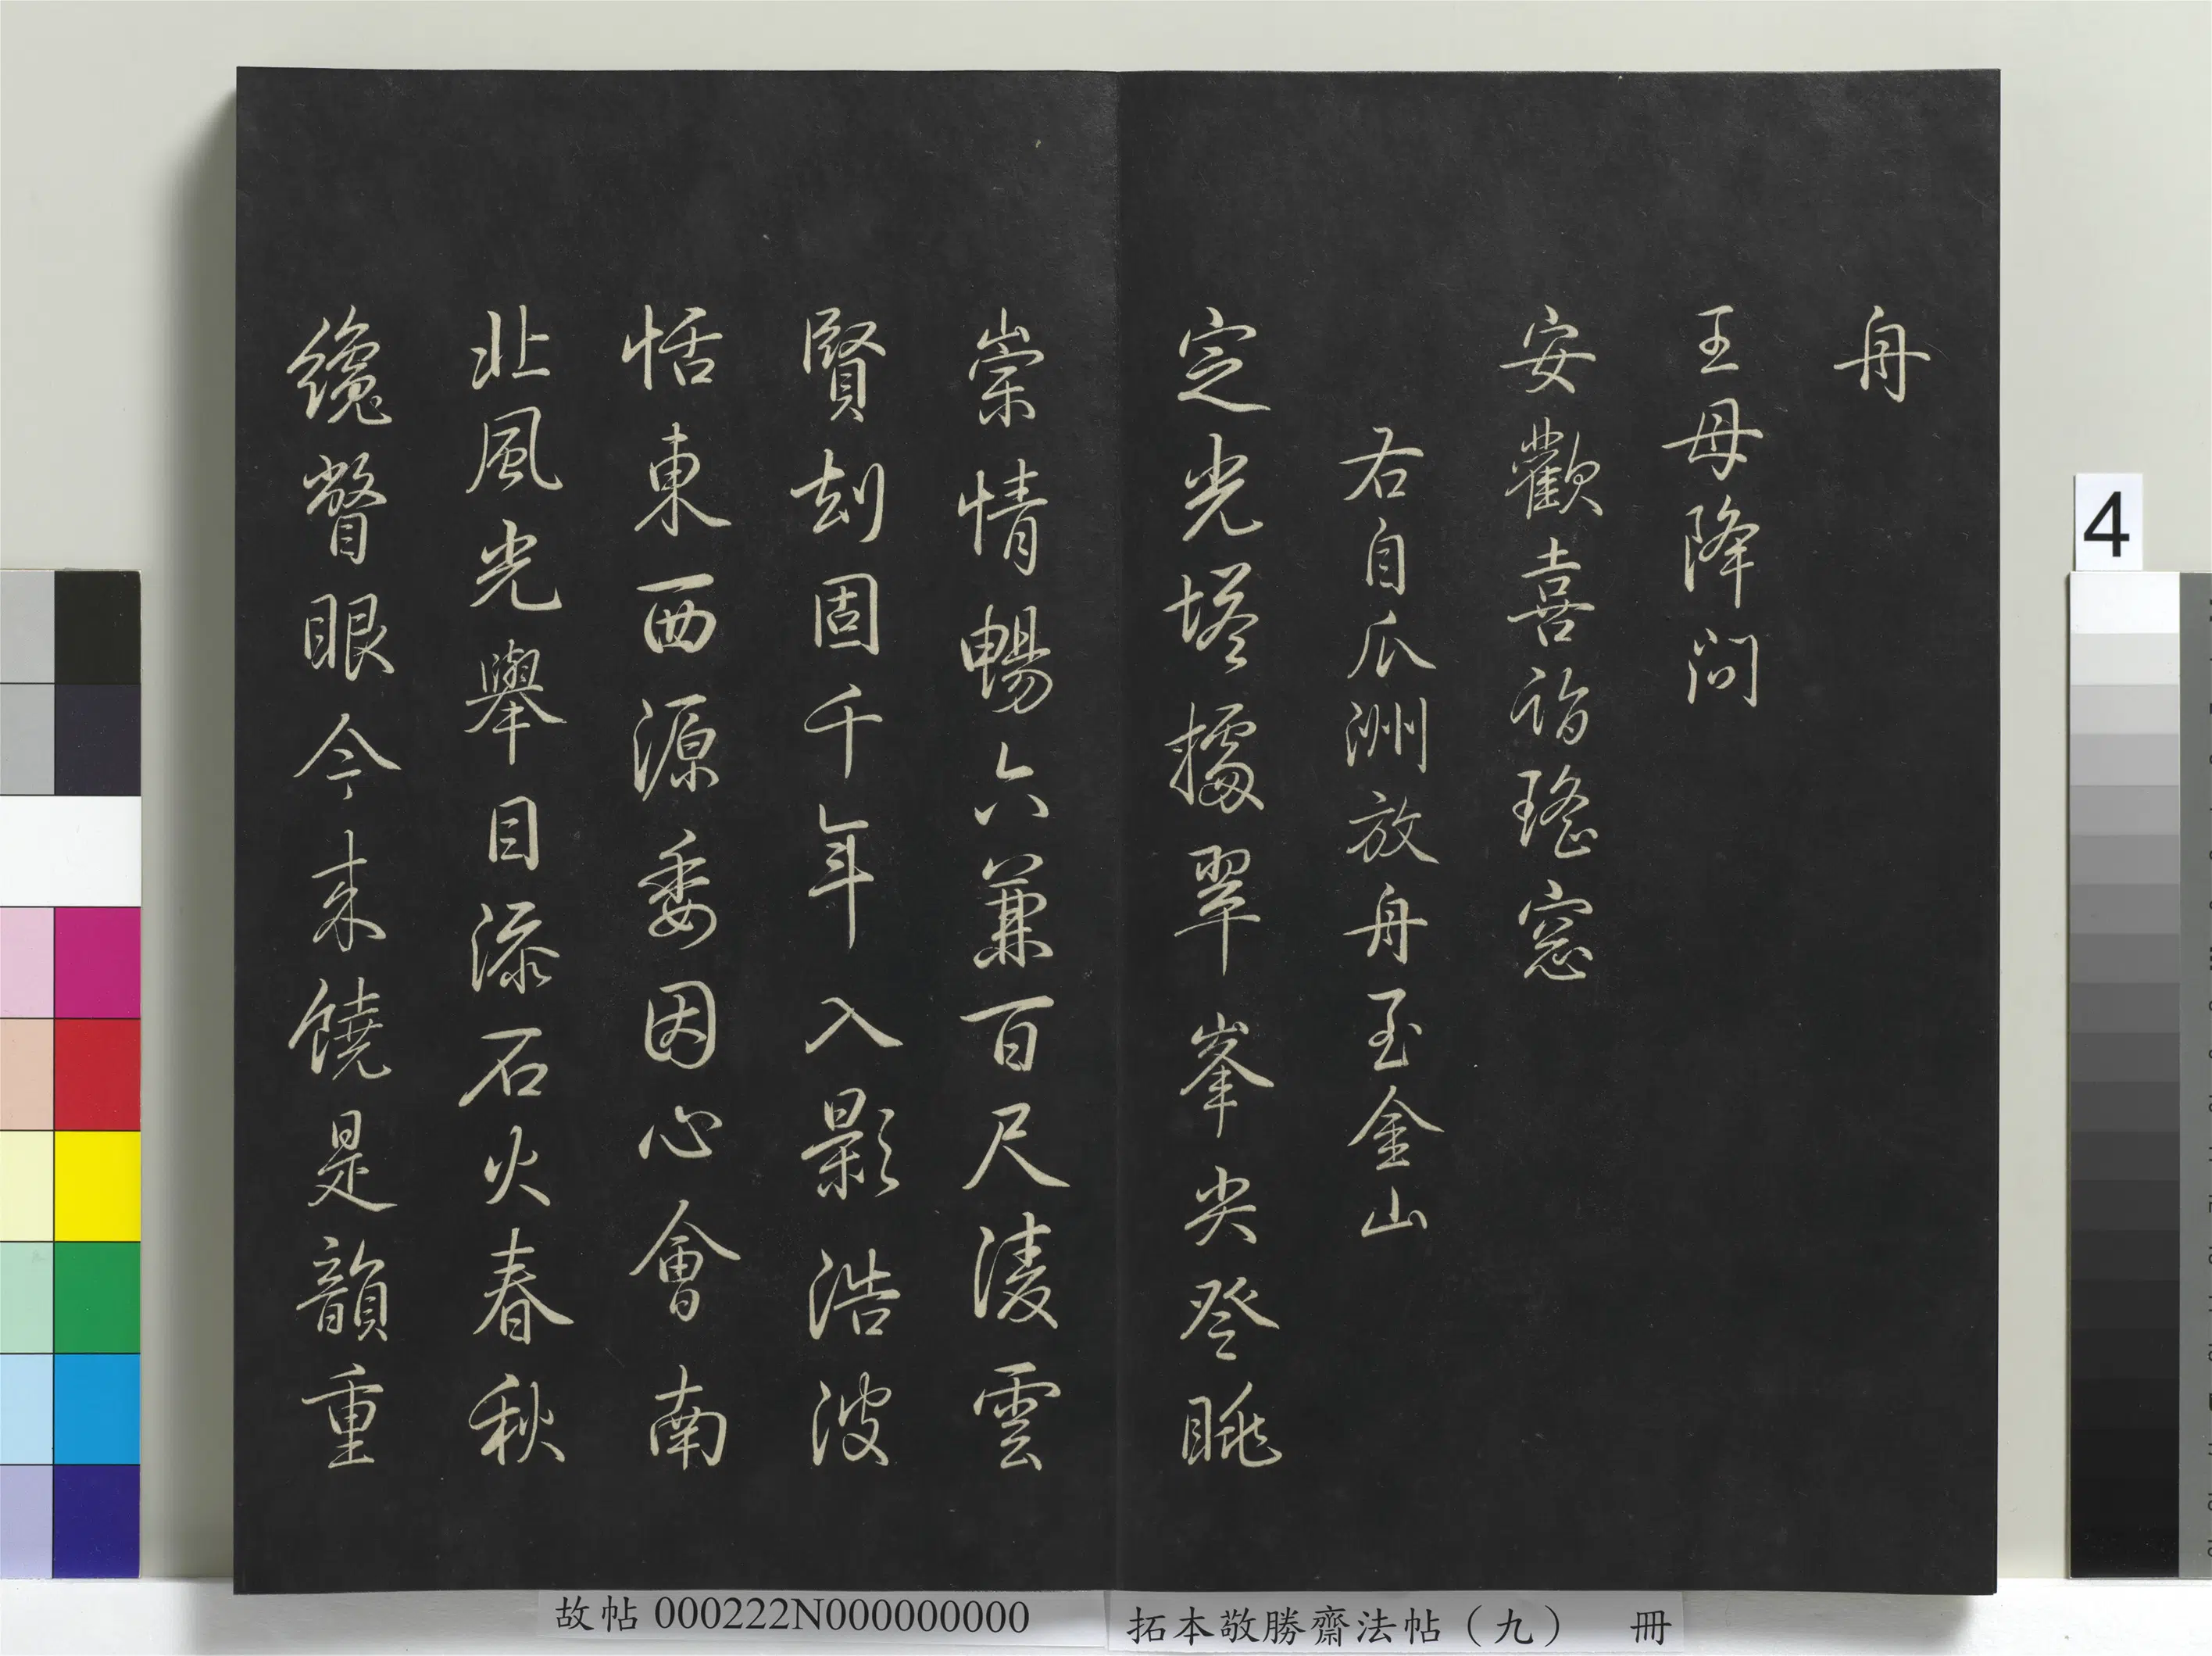 舟
王母降問
安歡喜詣瑤窓
右自瓜洲放舟至金山
定光塔據翠峯尖登眺
崇情暢六蒹百尺淩雲
賢劫固千年入影浩波
恬東西源委因心會南
北風光舉目添石火春秋
纔瞥眼今來饒是韻重
4
故帖 000222N000000000
拓本敬勝齋法帖（九） 冊